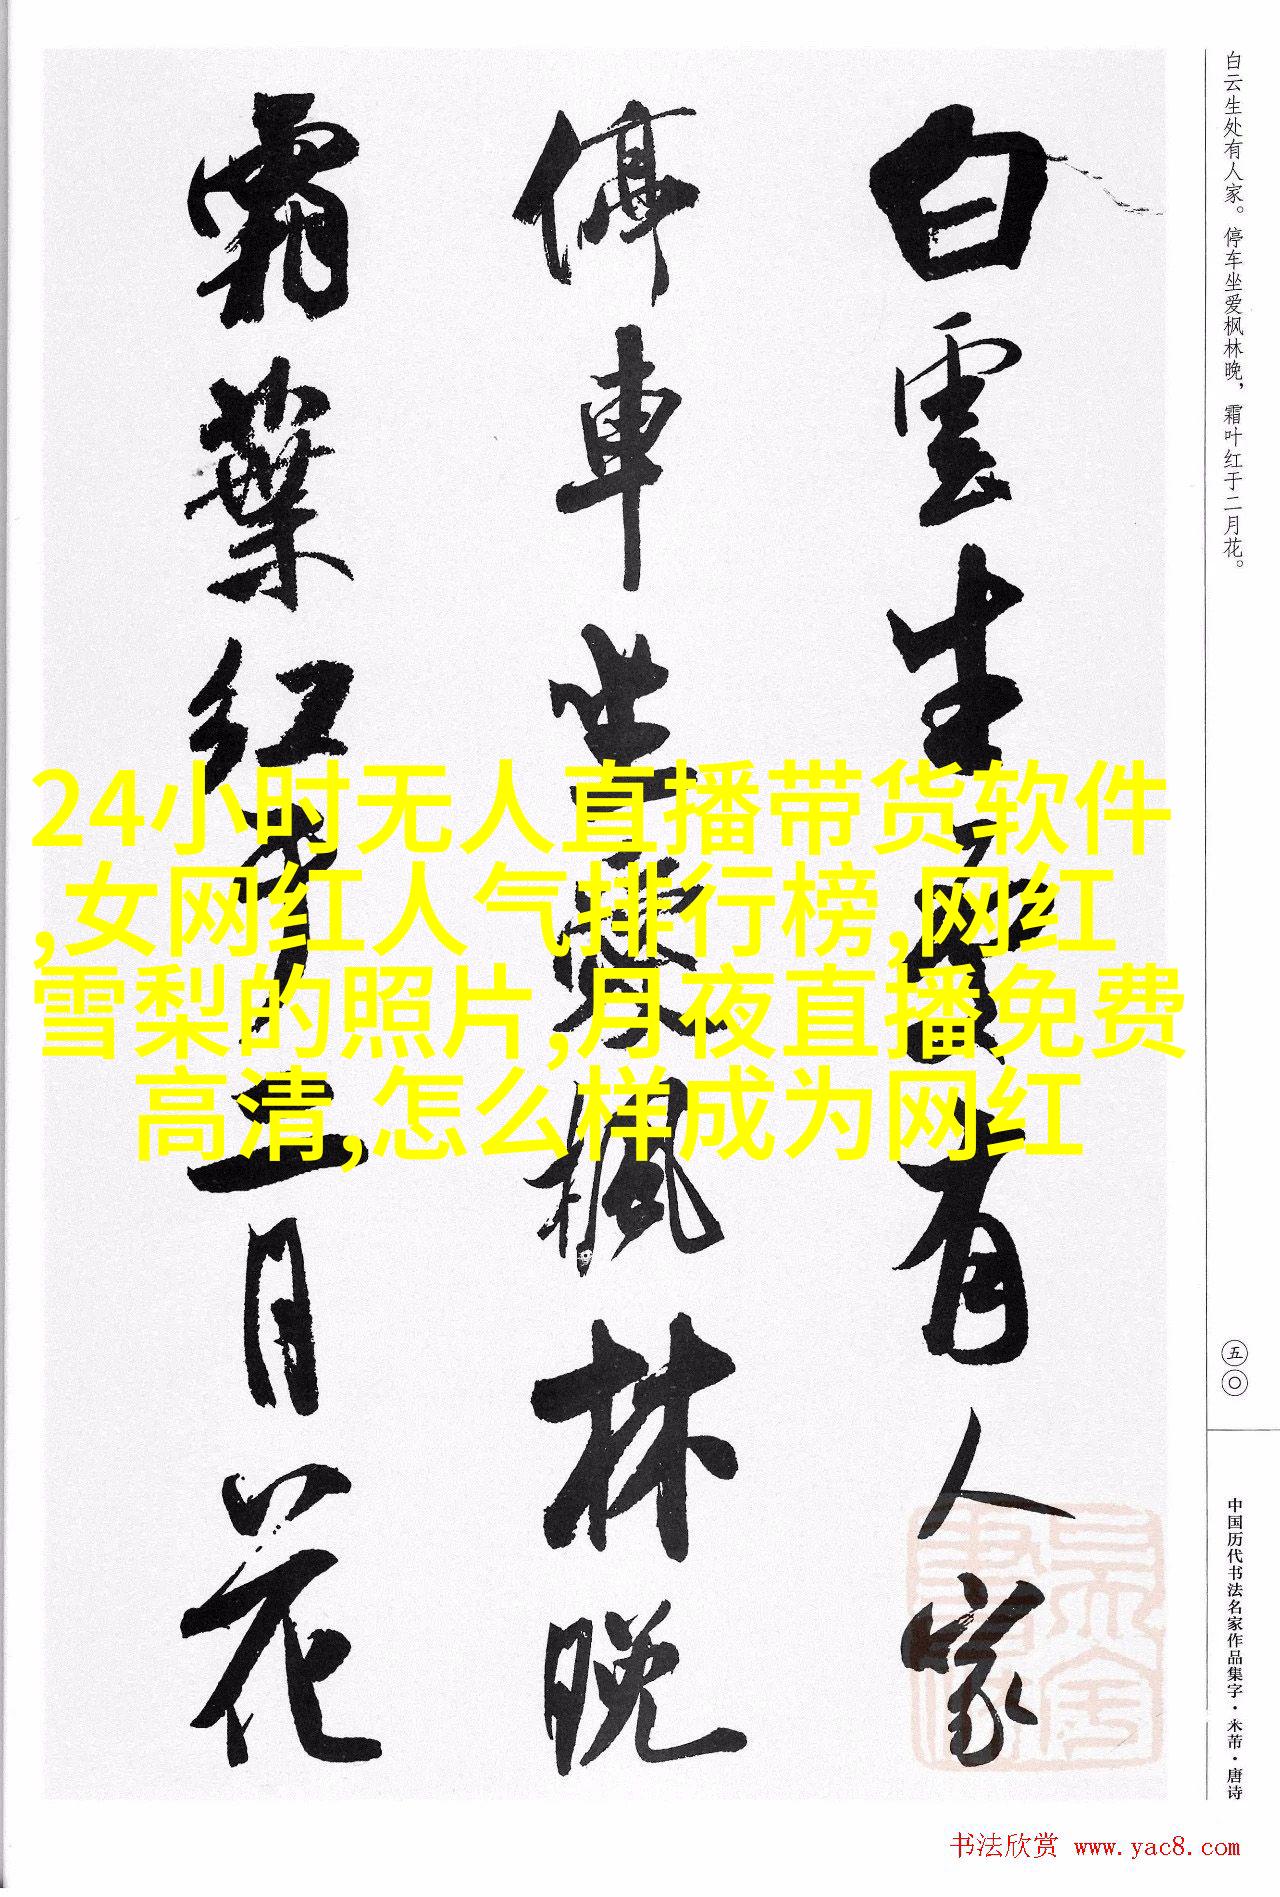 白云生处有人家。停车坐爱枫林晚，霜叶红于二月花。
白雲生處有人家
停車坐愛枫林晚
霜葉红於二月花
24小时无人直播带货软件
,女网红人气排行榜,网红
雪梨的照片,月夜直播免费
高清,怎么样成为网红
五〇
中国历代书法名家作品集字·米芾·唐诗
书法欣赏 www.yac8.com